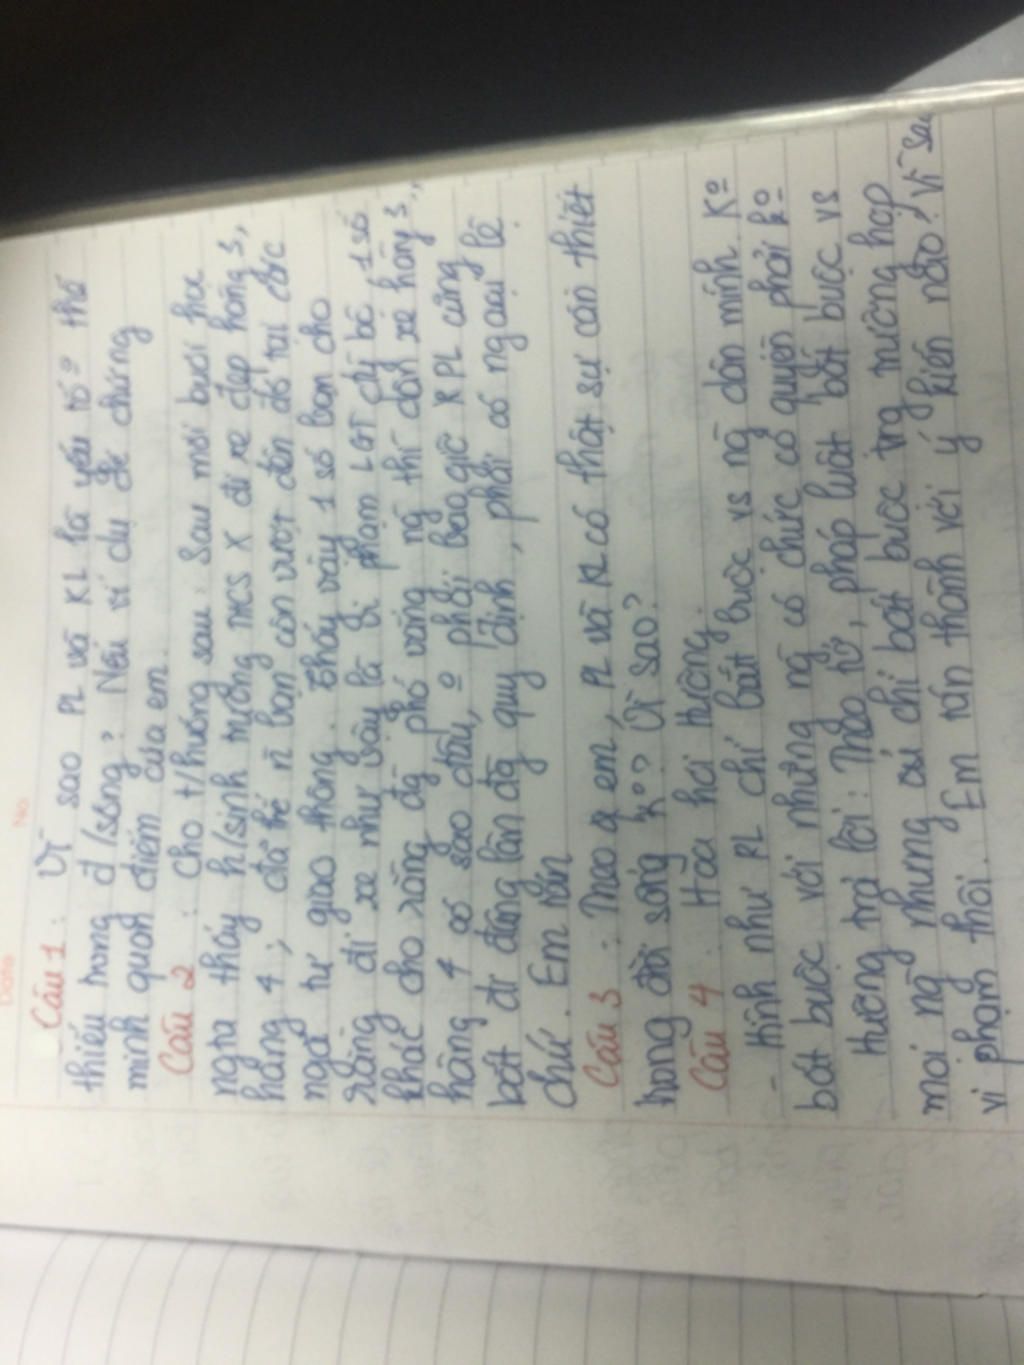 Câu 1 : Vì sao PL và KL là yếu tố º thể
thiếu trong đ/sống ? Nêu ví dụ để chứng
minh quan điểm của em.
Câu 2 : Cho t/huống sau : Sau mỗi buổi học
Nga thấy h/sinh trường THCS X đi xe đạp hàng 3,
hàng 4 ; đã thế n bạn còn vượt đèn đỏ tại các
ngã tư giao thông. Thấy vậy 1 số bạn cho
rằng đi xe như vậy là vi phạm LGT chỉ bê 1 số
khác cho rằng đg phố vắng ng thì dàn xe hàng 3,
hàng 4 có sao đâu, º phải bao giờ X PL cũng
bắt
quy định, phải có ngoại lệ
chứ. Em
Câu 3 : Theo em, PL và KL có thật sự cần thiết
trong đời sống kº? Vì sao?
Câu 4 : Hòa hỏi Hường.
- Hình như PL chỉ bắt buộc vs ng dân mình kº
bắt buộc với những ng có chức có quyền phải kº
Hường trả lời : Theo tớ, pháp luật bắt buộc vs
mọi ng nhưng chỉ bắt buộc trg trường hợp
vi phạm thôi. Em tán thành với ý kiến nào? Vì sao